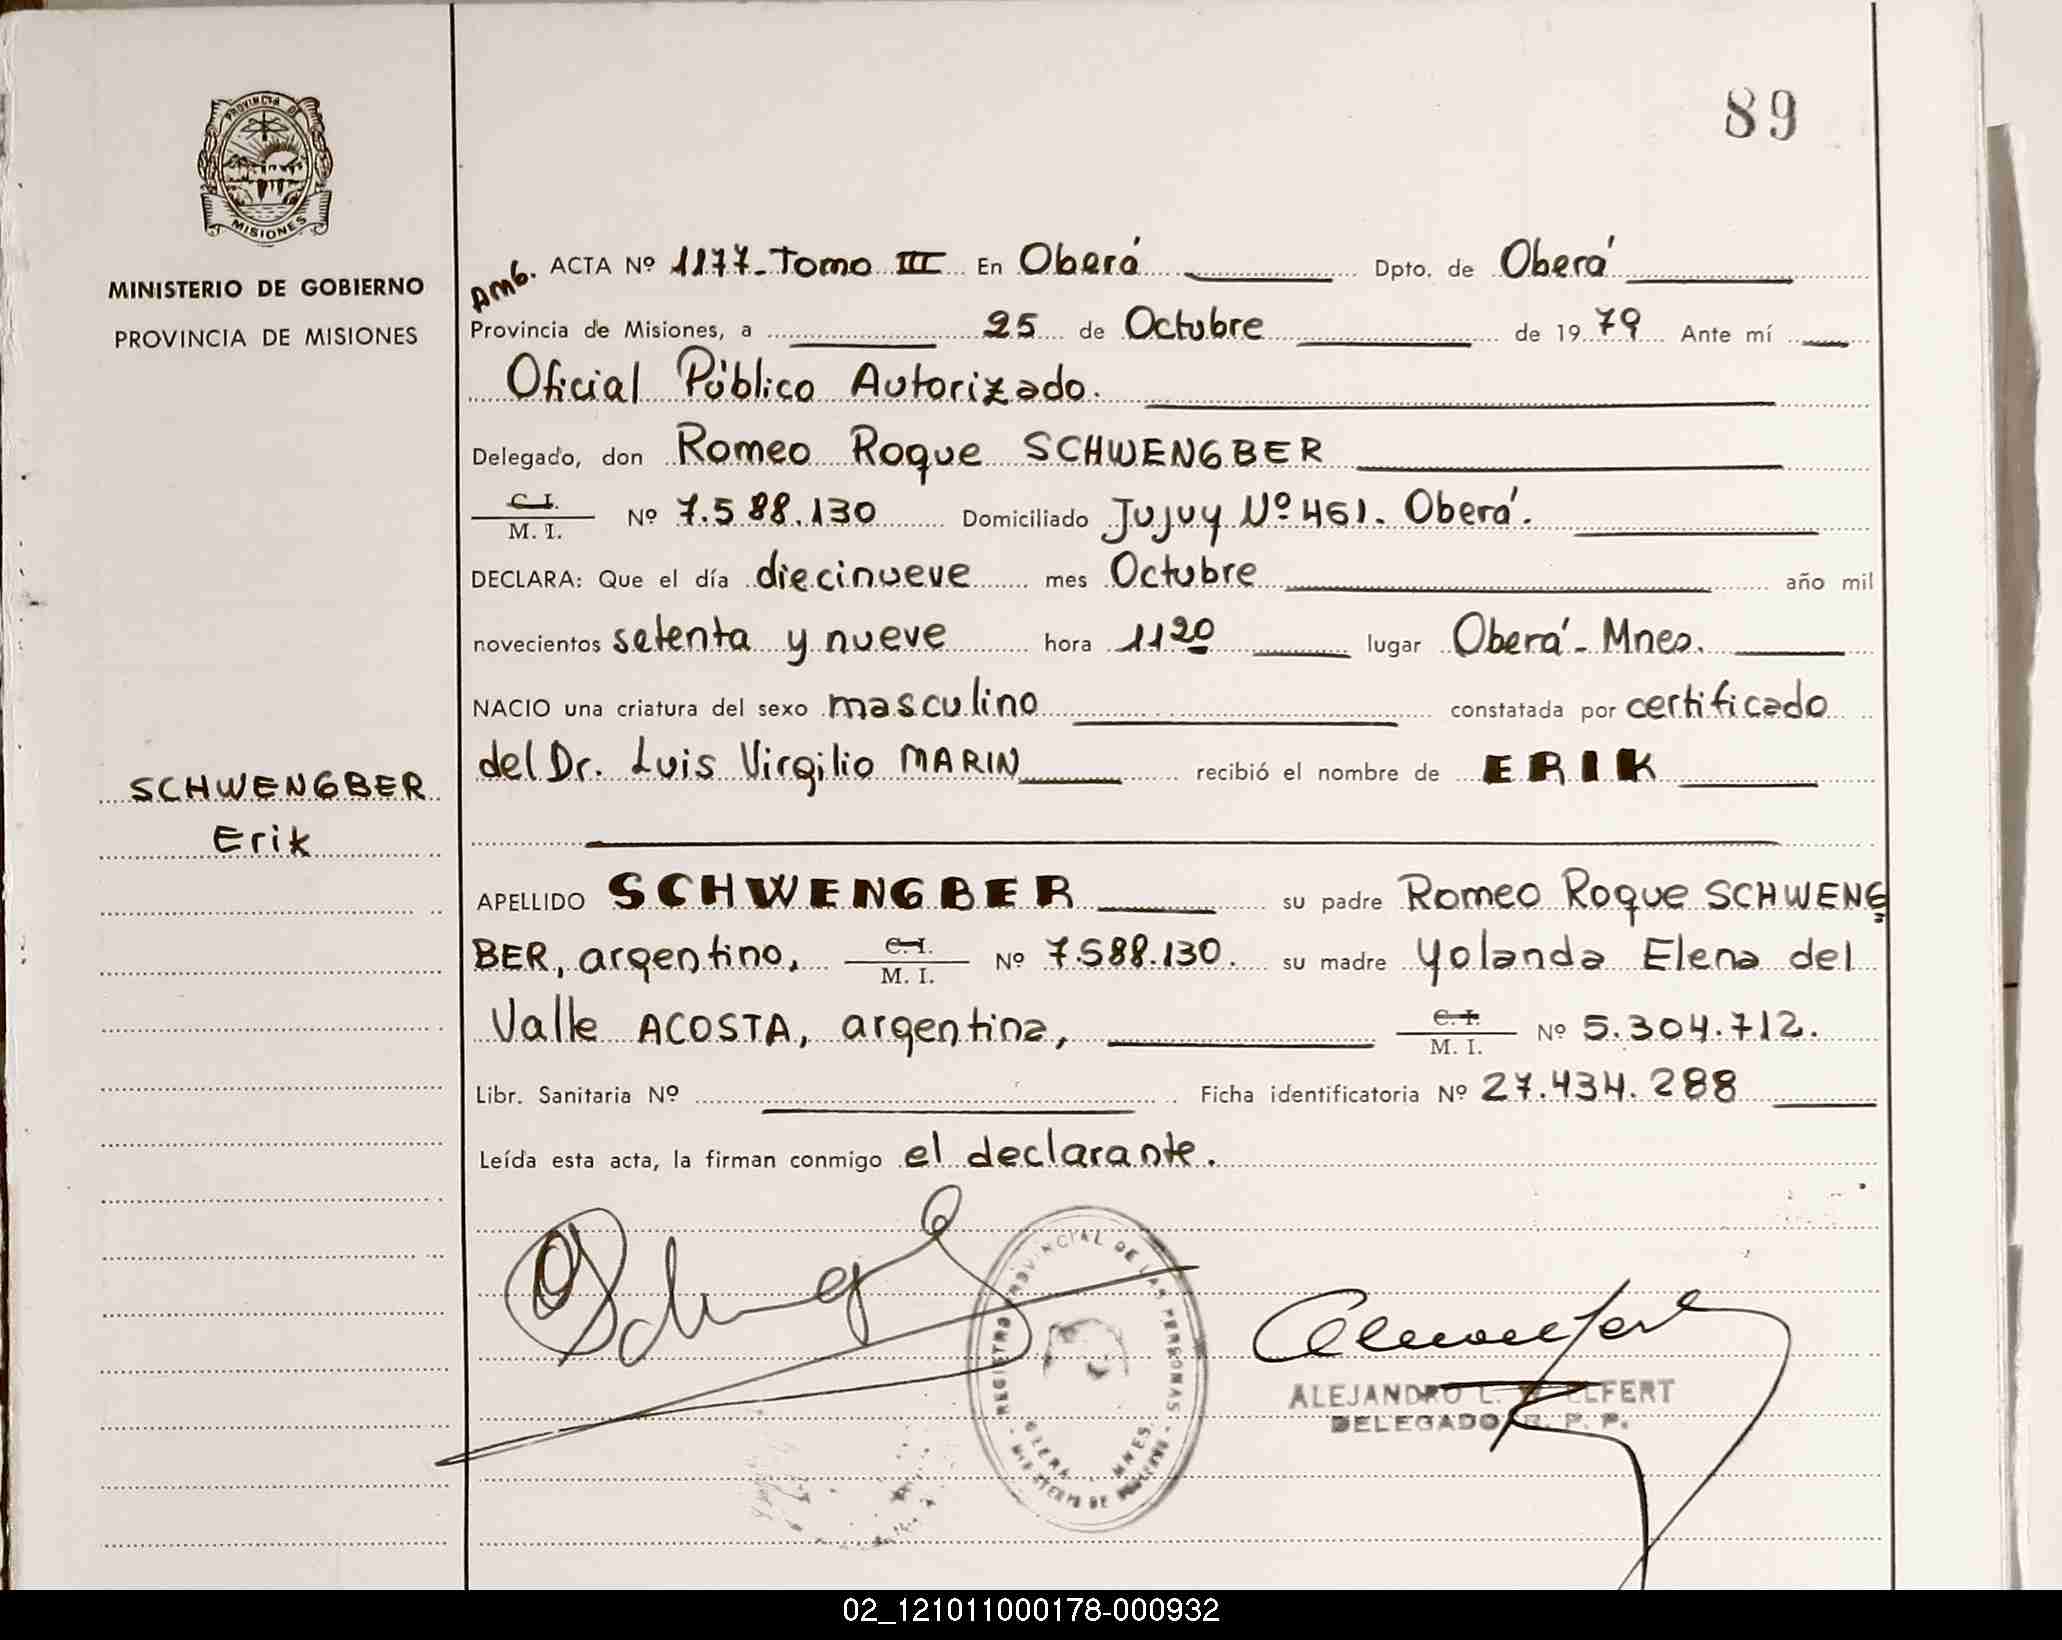 89
PROVINCIA DE
MISIONES
MINISTERIO DE GOBIERNO
PROVINCIA DE MISIONES
SCHWENGBER
Erik
Amb. ACTA Nº 1177-Tomo III En Oberá Dpto. de Oberá
Provincia de Misiones, a 25 de Octubre de 1979 Ante mí
Oficial Público Autorizado.
Delegado, don Romeo Roque SCHWENGBER
C. I.
M. I. Nº 7.588.130 Domiciliado Jujuy Nº 461. Oberá.
DECLARA: Que el día diecinueve mes Octubre año mil
novecientos setenta y nueve hora 11 20 lugar Oberá - Mnes.
NACIO una criatura del sexo masculino constatada por certificado
del Dr. Luis Virgilio MARIN recibió el nombre de ERIK
APELLIDO SCHWENGBER su padre Romeo Roque SCHWENG=
BER, argentino, C. I. M. I. Nº 7.588.130. su madre Yolanda Elena del
Valle ACOSTA, argentina, C. I. M. I. Nº 5.304.712.
Libr. Sanitaria Nº Ficha identificatoria Nº 27.434.288
Leída esta acta, la firman conmigo el declarante.
REGISTRO PROVINCIAL DE LAS PERSONAS
OBERA - MNES.
MINISTERIO DE GOBIERNO
ALEJANDRO L.
DELEGADO R. P. P.
02_121011000178-000932